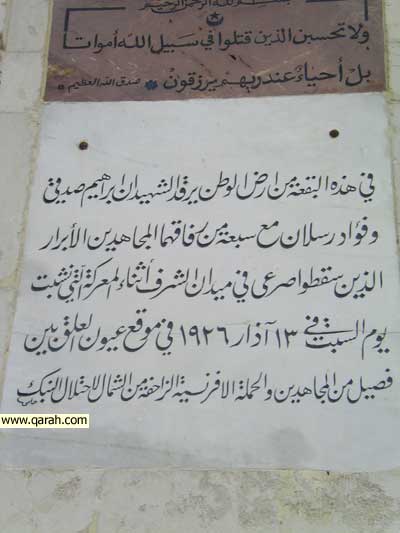 بسم الله الرحمن الرحيم
ولا تحسبن الذين قتلوا في سبيل الله أمواتا
بل أحياء عند ربهم يرزقون صدق الله العظيم
في هذه البقعة من ارض الوطن يرقد الشهيدان ابراهيم صدقي
وفؤاد رسلان مع سبعة من رفاقهما المجاهدين الأبرار
الذين سقطوا صرعى في ميدان الشرف أثناء المعركة التي نشبت
يوم السبت في ١٣ آذار ١٩٢٦ في موقع عيون العلق بين
فصيل من المجاهدين والحملة الافرنسية الزاحفة من الشمال لاحتلال النبك
www.qarah.com